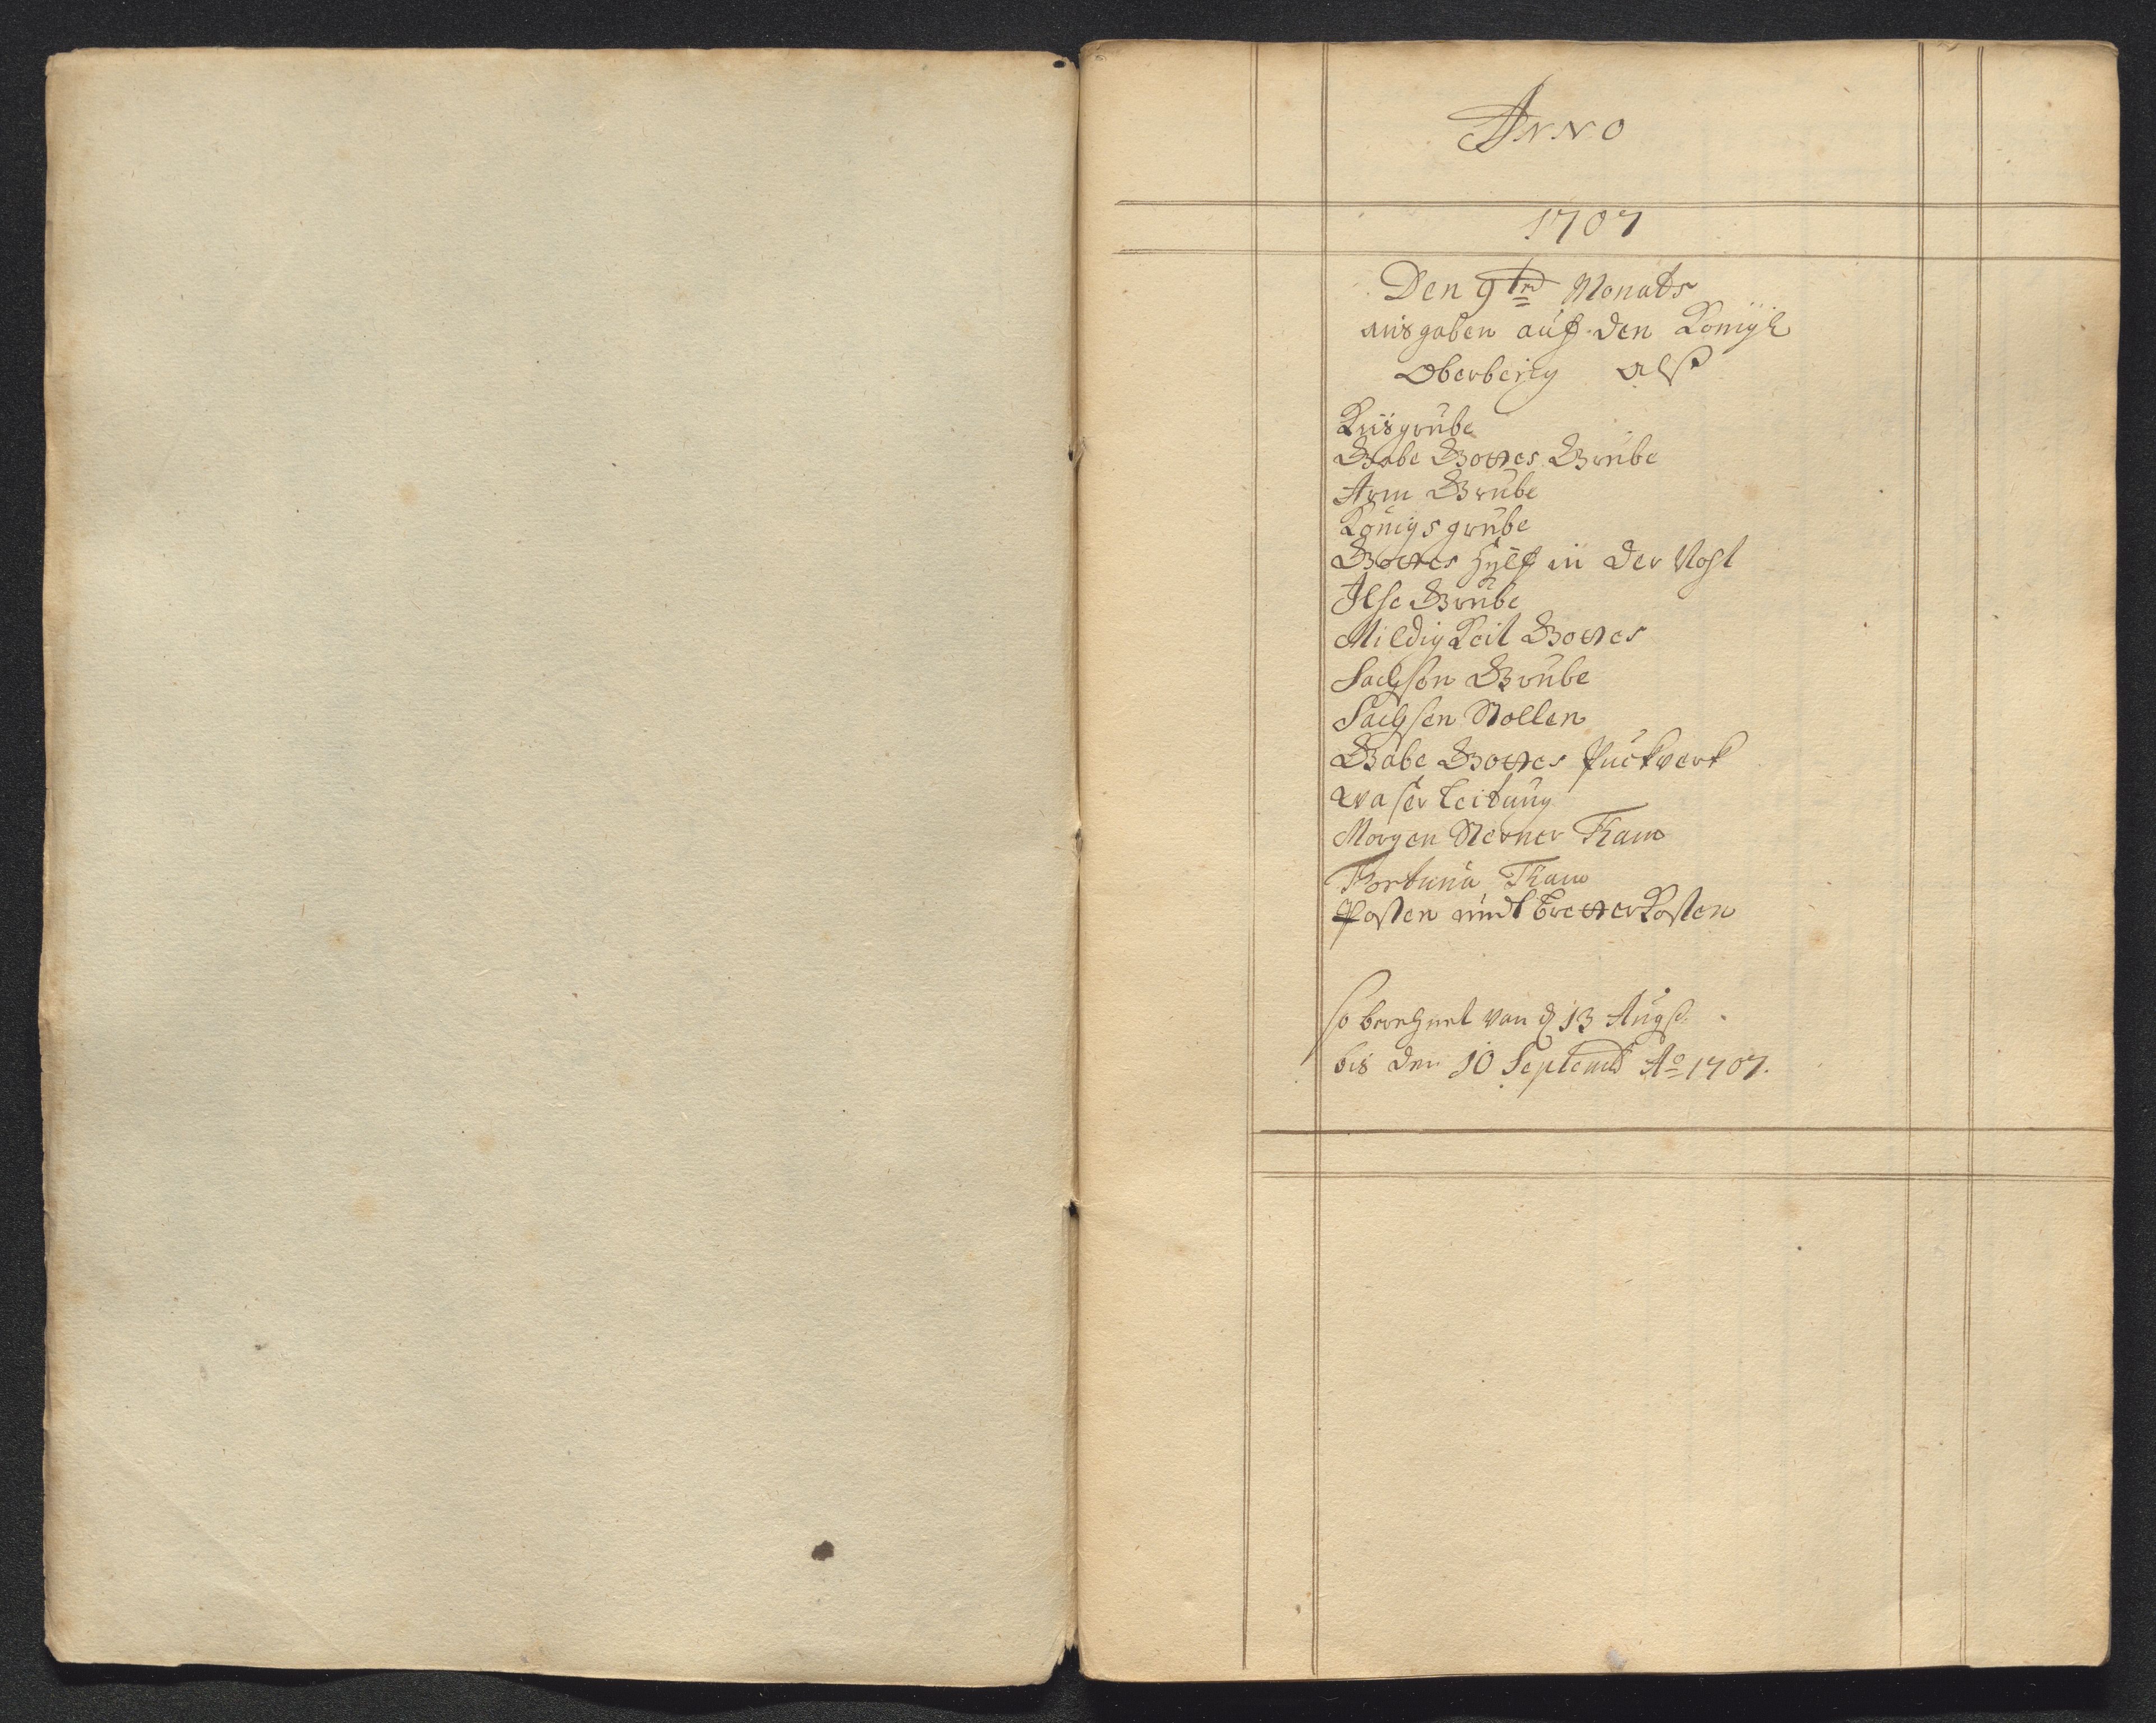 Anno
1707
Den 9t Monats
ausgaben auf den Königl
Oberberg Alß
Gabe Gottes Grube
Arm Grube
Königs grube
Gottes Hylf in der Noht
Ilse Grube
Mildigkeit Gottes
Sachsen Grube
Sachsen Stollen
Gabe Gottes Puckverk
Waser Leitung
Morgen Sterner Tham
Fortuna Tham
Posten undt bretter Kosten
so berechnet van d 13 Augs.
bis den 10 Septemb Ao 1707.